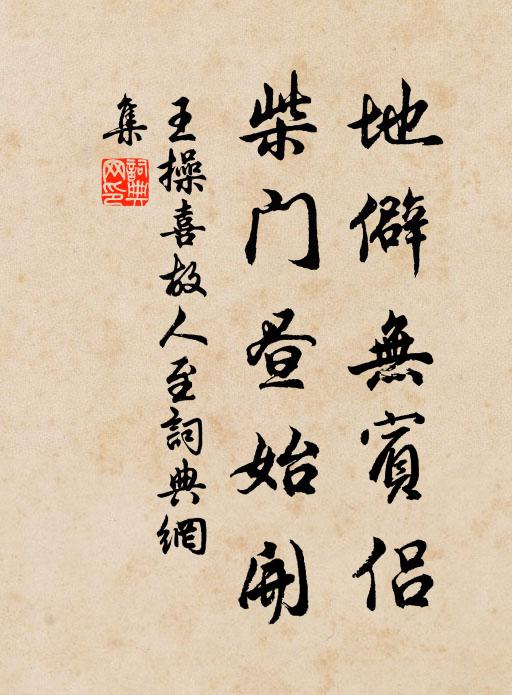 地僻無賓侶
柴门昼始開
王操喜故人至詞典網
集
詞典
网印